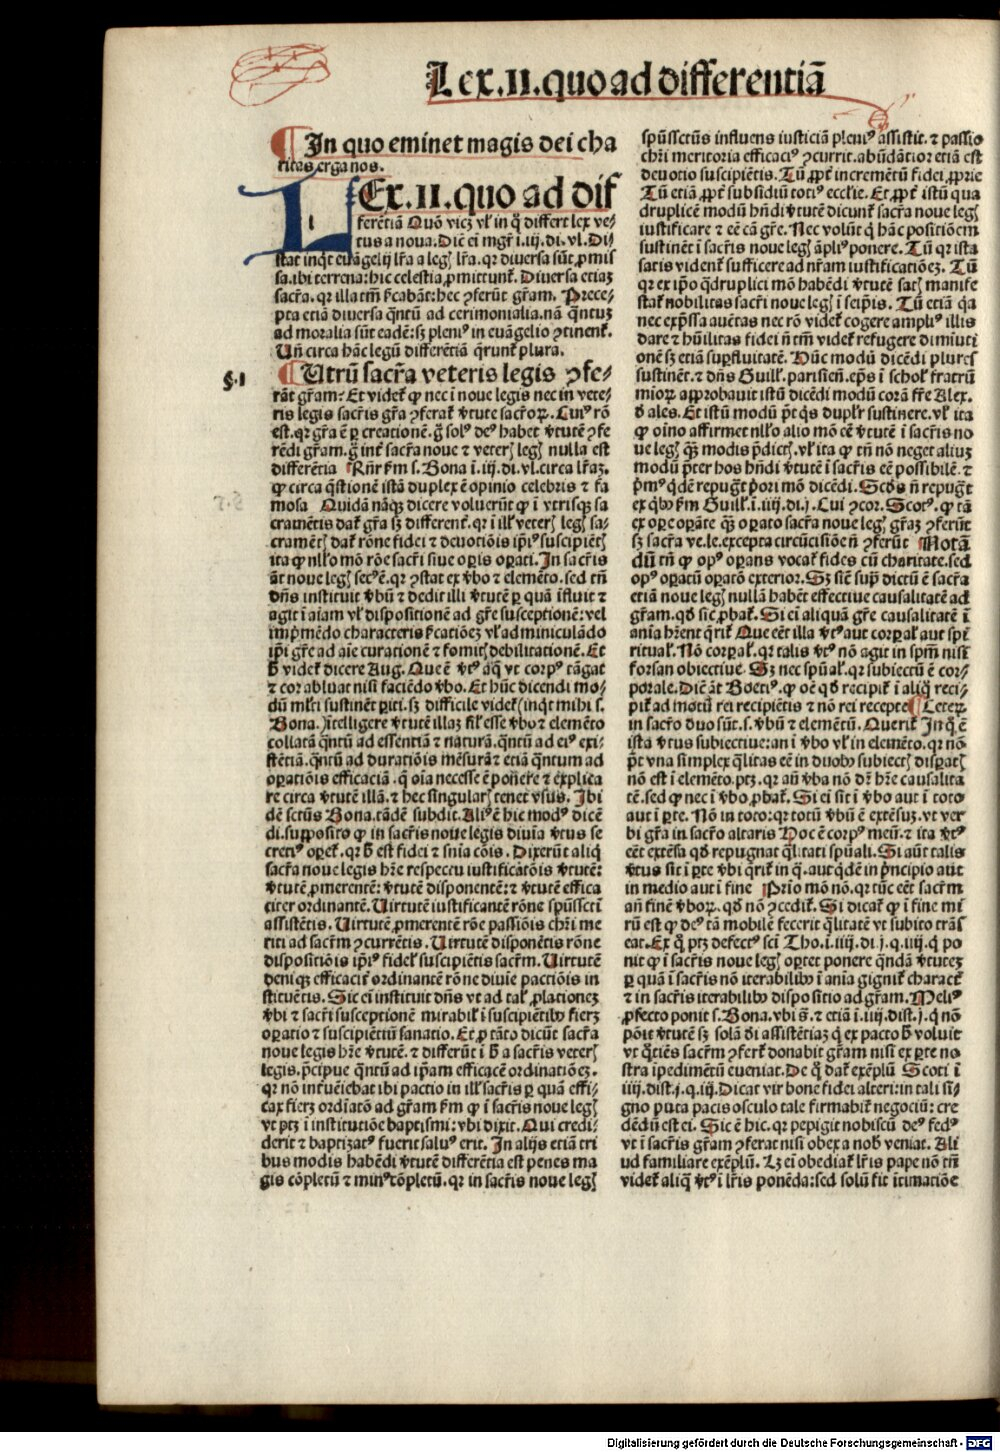 Lex.II.quo ad differentiã
¶ In quo eminet magis dei cha
ritas erga nos.
LEx.II.quo ad dif
ferẽtiã Quõ vicz vl' in q̃ differt lex ve-
tus a noua. Diẽ ei mgr̃ i.iij.di.vl. Di-
stat inqt euãgelij lr̃a a legꝭ lr̃a. qr diuersa sũt ꝓmis
sa. ibi terrena: hic celestia ꝓmittunt̃. Diuersa etiaz
sacr̃a. qr illa tm̃ figabãt: hec ꝯferũt gr̃am. Prece-
pta etiã diuersa q̃ntũ ad cerimonialia. nã q̃ntuz
ad moralia sũt eadẽ: sꝫ pleniꝰ in euãgelio ꝯtinent̃.
Uñ circa hãc legũ differẽtiã q̃runt̃ plura.
§.1
¶ Utrũ sacr̃a veteris legis ꝯfe-
rãt gr̃am. Et videt̃ ꝙ nec i noue legis nec in vete-
ris legis sacr̃is gr̃a ꝯferat̃ v̓tute sacr̃oꝝ. Cuiꝰ rõ
est. qr gr̃a ẽ ꝑ creationẽ. g̃ solꝰ deꝰ habet v̓tutẽ ꝯfe
rẽdi gr̃am. g̃ int̃ sacr̃a noue ⁊ veterꝭ legꝭ nulla est
differẽtia Rñr ẜm s. Bona i.iij.di.vl. circa lr̃az.
ꝙ circa q̃stionẽ istã duplex ẽ opinio celebris ⁊ fa
mosa Quidã nãqꝫ dicere voluerũt ꝙ i vtrisqꝫ sa
cramẽtis dat̃ gr̃a sꝫ different̃. qr i ill' veterꝭ legꝭ sa-
cramẽtꝭ dat̃ rõne fidei ⁊ deuotiõis ip̃iꝰ suscipiẽtꝭ
ita ꝙ nll'o mõ rõe sacr̃i siue oꝑis oꝑati. In sacr̃is
ãt noue legꝭ secꝰ ẽ. qr ꝯstat ex v̓bo ⁊ elemẽto. sed tñ
dñs instituit v̓bũ ⁊ dedit illi v̓tutẽ ꝑ quã ĩfluit ⁊
agit i aiam vl' dispositionẽ ad gr̃e susceptionẽ: vel
imp̃mẽdo characteris ficatiõez vl' ad miniculãdo
ip̃i gr̃e ad aie curationẽ ⁊ fomitꝭ debilitationẽ. Et
ħ videt̃ dicere Aug. Que ẽ vtꝰ aq̃ vt corpꝰ tãgat
⁊ cor abluat nisi faciẽdo v̓bo. Et hũc dicendi mo-
dũ ml'ti sustinent ꝑiti. sꝫ difficile videt̃ inqt mihi s.
Bona. Intelligere v̓tutẽ illaz fil' esse v̓bo ⁊ elemẽto
collatã q̃ntũ ad essentiã ⁊ naturã. q̃ntũ ad eiꝰ exi-
stẽtiã. q̃ntũ ad duratiõis mẽsurã ⁊ etiã q̃ntum ad
oꝑatiõis efficaciã. q̃ oia necesse ẽ ponere ⁊ explica
re circa v̓tutẽ illã. ⁊ hec singularꝭ tenet vsus. Ibi
dẽ sctũs Bona. tãdẽ subdit. Aliꝰ ẽ hic modꝰ dicẽ
di. supposito ꝙ in sacr̃is noue legis diuia v̓tus se
cretiꝰ oꝑet̃. qr ħ est fidei ⁊ snia cõis. Dixerũt aliq̃
sacr̃a noue legis hr̃e respectu iustificatõis v̓tutẽ:
v̓tutẽ ꝓmerentẽ: v̓tutẽ disponentẽ: ⁊ v̓tutẽ effica
citer ordinantẽ. Uirtutẽ iustificantẽ rõne spũsscti
assistẽtis. Uirtutẽ ꝓmerentẽ rõe passiõis chr̃i me
riti ad sacr̃m ꝯcurrẽtis. Uirtutẽ disponẽtis rõne
dispositiõis ip̃iꝰ fidel' suscipiẽtis sacr̃m. Uirtutẽ
deniqꝫ efficacit̃ ordinantẽ rõne diuie pactiõis in
stituẽtis. Sic ei instituit dñs vt ad tal' ꝓlationez
v̓bi ⁊ sacr̃i susceptionẽ mirabil' i suscipiẽtibꝰ fierꝫ
oꝑatio ⁊ suscipiẽtiũ sanatio. Et ꝓ tãto dicũt sacr̃a
noue legis hr̃e v̓tutẽ. ⁊ differũt i ħ a sacr̃is veterꝭ
legis. p̃cipue q̃ntũ ad ip̃am efficacẽ ordinatiõez.
qr nõ inf̃ueĩebat ibi pactio in ill' sacr̃is ꝑ quã effi-
cax fierꝫ ordĩatõ ad gr̃am ẜm ꝙ i sacr̃is noue legꝭ
vt ptꝫ i institutiõe baptismi: vbi dixit. Qui credi-
derit ⁊ baptizatꝰ fuerit saluꝰ erit. In alijs etiã tri
bus modis habẽdi v̓tutẽ differẽtia est penes ma
gis cõpletũ ⁊ minꝰ cõpletũ. qr in sacr̃is noue legꝭ
spũssctũs influens iusticiã pleniꝰ assistit. ⁊ passio
chr̃i meritoria efficaciꝰ ꝯcurrit. abũdãtior etiã est
deuotio suscipiẽtis. Tũ ꝓpt̃ incremẽtũ fidei ꝓprie
Tũ etiã ꝓpt̃ subsidiũ totiꝰ eccl'ie. Et ꝓpt̃ istũ qua
druplicẽ modũ hñdi v̓tutẽ dicunt̃ sacr̃a noue legꝭ
iustificare ⁊ eẽ cã gr̃e. Nec volũt q̃ hãc positiõem
sustinẽt i sacr̃is noue legꝭ ãpliꝰ ponere. Tũ qr ista
satis vident̃ sufficere ad nr̃am iustificatiõez. Tũ
qr ex ip̃o q̃druplici mõ habẽdi v̓tutẽ satꝭ manife
stat̃ nobilitas sacr̃i noue legꝭ i seip̃is. Tũ etiã q̃a
nec exp̃ssa auẽtas nec rõ videt̃ cogere ampliꝰ illis
dare ⁊ hũilitas fidei ñ tm̃ videt̃ refugere diminuti
onẽ sꝫ etiã suꝑfluitatẽ. Hũc modũ dicẽdi plures
sustinẽt. ⁊ dñs Guill'. parisieñ. ep̃s i schol' fratrũ
mioꝝ approbauit istũ dicẽdi modũ corã fr̃e Alex.
d̓ ales. Et istũ modũ p̃t q̃s dupl'r sustinere. vl' ita
ꝙ oĩno affirmet nll'o alio mõ eẽ v̓tutẽ i sacr̃is no
ue legꝭ q̃ꝫ modis p̃dictꝭ. vl' ita ꝙ tñ nõ neget aliuz
modũ p̃ter hos hñdi v̓tutẽ i sacr̃is eẽ possibilẽ. ⁊
p̃mꝰ q̃dẽ repug̃t p̓ori mõ dicẽdi. Scd̓s ñ repug̃t
ex q̃bꝰ ẜm Guill'. i.iiij.di.j. Cui ꝯcor. Scotꝰ. ꝙ tã
ex oꝑe oꝑãte q̃ꝫ oꝑato sacr̃a noue legꝭ gr̃az ꝯferũt
sꝫ sacr̃a ve.le. excepta circũcisiõe ñ ꝯferũt Notã
dũ tñ ꝙ opꝰ oꝑans vocat̃ fides cũ charitate. sed
opꝰ oꝑatũ oꝑatõ exterior. Sꝫ siẽ sup̃ dictũ ẽ sacr̃a
etiã noue legꝭ nullã habẽt effectiue causalitatẽ ad
gr̃am. qd̓ sic ꝓbat̃. Si ei aliquã gr̃e causalitatẽ i
ania hẽent q̃rit̃ Que eẽt illa vtꝰ aut corꝑal' aut spi
ritual'. Nõ corꝑal'. qr talis vtꝰ nõ agit in spm̃ nisi
forsan obiectiue. Sꝫ nec spũal'. qr subiectũ ẽ cor-
porale. Diẽ ãt Boetiꝰ. ꝙ oẽ qd̓ recipit̃ i aliq̃ reci-
pit̃ ad motũ rei recipiẽtis ⁊ nõ rei recepte ¶ Ceteꝝ
in sacr̃o duo sũt. s. v̓bũ ⁊ elemẽtũ. Querit̃ In q̃ ẽ
ista v̓tus subiectiue: an i v̓bo vl' in elemẽto. qr nõ
p̃t vna simplex q̃litas eẽ in duobꝰ subiectꝭ disꝑatꝭ
nõ est i elemẽto. ptꝫ. qr añ v̓ba nõ dr̃ hr̃e causalita
tẽ. sed ꝙ nec i v̓bo ꝓbat̃. Si ei sit i v̓bo aut i toto
aut i ꝑte. Nõ in toto: qr totũ v̓bũ ẽ extẽsuz. vt ver
bi gr̃a in sacr̃o altaris Hoc ẽ corpꝰ meũ. ⁊ ita vtꝰ
eẽt extẽsa qd̓ repugnat q̃litati spũali. Si aũt talis
v̓tus sit i ꝑte v̓bi q̃rit̃ in q̃. aut q̃dẽ in p̓ncipio aut
in medio aut i fine Prio mõ nõ. qr tũc eẽt sacr̃m
añ finẽ v̓boꝝ. qd̓ nõ ꝯcedit̃. Si dicat̃ ꝙ i fine mi
rũ est ꝙ deꝰ tã mobilẽ fecerit q̃litatẽ vt subito trãs
eat. Ex q̃ ptꝫ defectꝰ sci Tho. i.iiij.di.j.q.iiij. q̃ po
nit ꝙ i sacr̃is noue legꝭ oꝑtet ponere q̃ndã v̓tutez
ꝑ quã i sacr̃is nõ iterabilibꝰ i ania gignit̃ charact̃
⁊ in sacr̃is iterabilibꝰ dispositio ad gr̃am. Meliꝰ
ꝓfecto ponit s. Bona. vbi s̃. ⁊ etiã i.iiij.dist.j. q̃ nõ
põit v̓tutẽ sꝫ solã d̓i assistẽtiaz q̃ ex pacto ħ voluit
vt q̃tiẽs sacr̃m ꝯfert̃ donabit gr̃am nisi ex ꝑte no
stra ipedimẽtũ eueniat. De q̃ dat̃ exẽplũ Scoti i
iiij.dist.j.q.iij. Dicat vir bone fidei alteri: in tali si-
gno puta pacis osculo tale firmabit̃ negociũ: cre
dẽdũ est ei. Sic ẽ hic. qr pepigit nobiscũ deꝰ fedꝰ
vt i sacr̃is gr̃am ꝯferat nisi obex a nob̓ veniat. Ali
ud familiare exẽplũ. Lꝫ ei obediat̃ lr̃is pape nõ tñ
videt̃ aliq̃ vtꝰ i lr̃is ponẽda: sed solũ fit itimatiõe
Digitalisierung gefördert durch die Deutsche Forschungsgemeinschaft - DFG